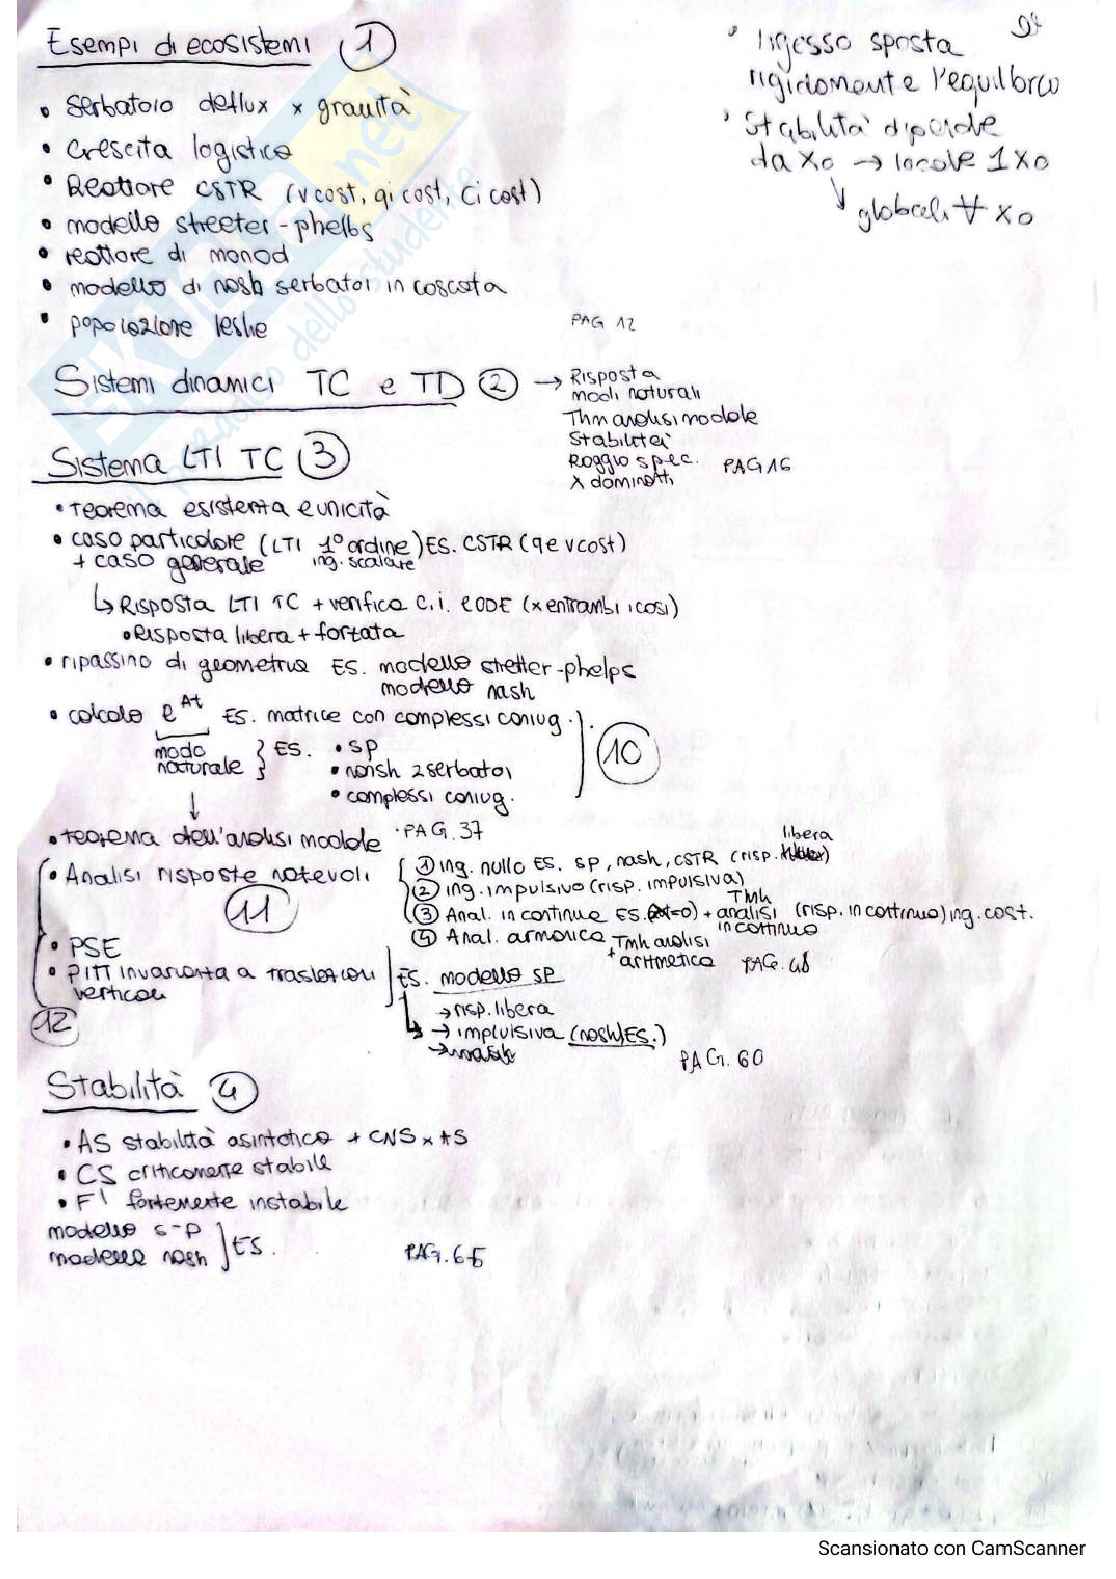 Esempi di ecosistemi 1
• Serbatoio deflux x gravità
• Crescita logistica
• Reattore CSTR (v cost, qi cost, Ci cost)
• modello streeter-phelbs
• reattore di monod
• modello di nash serbatoi in cascata
• popolazione leslie
PAG 12
• Ingesso sposta
rigidamente l'equilibrio
• Stabilità dipende
da x0 → locale 1 x0
↓ globali ∀ x0
Sistemi dinamici TC e TD 2 → Risposta
modi naturali
Thm analisi modale
Stabilità
Raggio spec.
λ dominatti
PAG 16
Sistema LTI TC 3
• teorema esistenza e unicità
• caso particolare (LTI 1° ordine) ES. CSTR (q e v cost)
+ caso generale ing. scalare
↳ Risposta LTI TC + verifica c.i. e ODE (x entrambi i casi)
• Risposta libera + forzata
• ripassino di geometria ES. modello stretter-phelps
modello nash
• calcolo e^At ES. matrice con complessi coniug.
modo naturale } ES. • SP
• nansh 2 serbatoi
• complessi coniug.
10
• teorema dell'analisi modale • PAG. 37
• Analisi risposte notevoli
11
1 ing. nullo ES. SP, nash, CSTR (risp. libera)
2 ing. impulsivo (risp. impulsiva)
3 Anal. in continua ES. + Tmh analisi in continuo (risp. in continuo) ing. cost.
4 Anal. armonica Tmh analisi
+ aritmetica PAG. 48
• PSE
• Pitt invarianza a traslazioni
verticali
12
ES. modello SP
→ risp. libera
→ impulsiva (nash ES.)
PAG. 60
Stabilità 4
• AS stabilità asintotica + CNS x AS
• CS criticamente stabile
• FI fortemente instabile
modello s-p
modello nash } ES.
PAG. 65
Scansionato con CamScanner